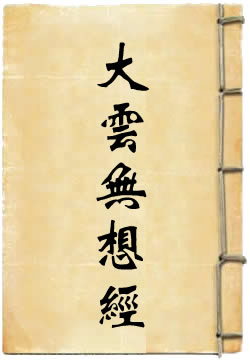 大雲無想經